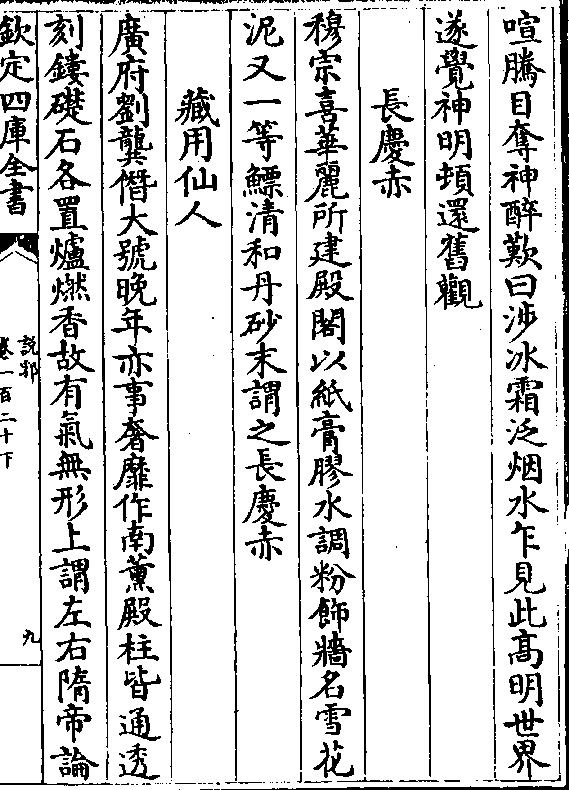 喧騰目奪神醉歎曰涉冰霜泛烟水乍見此髙明世界
遂覺神明頓還舊觀
長慶赤
穆宗喜華麗所建殿閣以紙膏膠水調粉飾牆名雪花
泥又一等鰾清和丹砂末謂之長慶赤
藏用仙人
廣府劉龑僭大號晚年亦事奢靡作南薰殿柱皆通透
刻鏤礎石各置爐燃香故有氣無形上謂左右隋帝論
欽定四庫全書
説郛
卷一百二十下
九